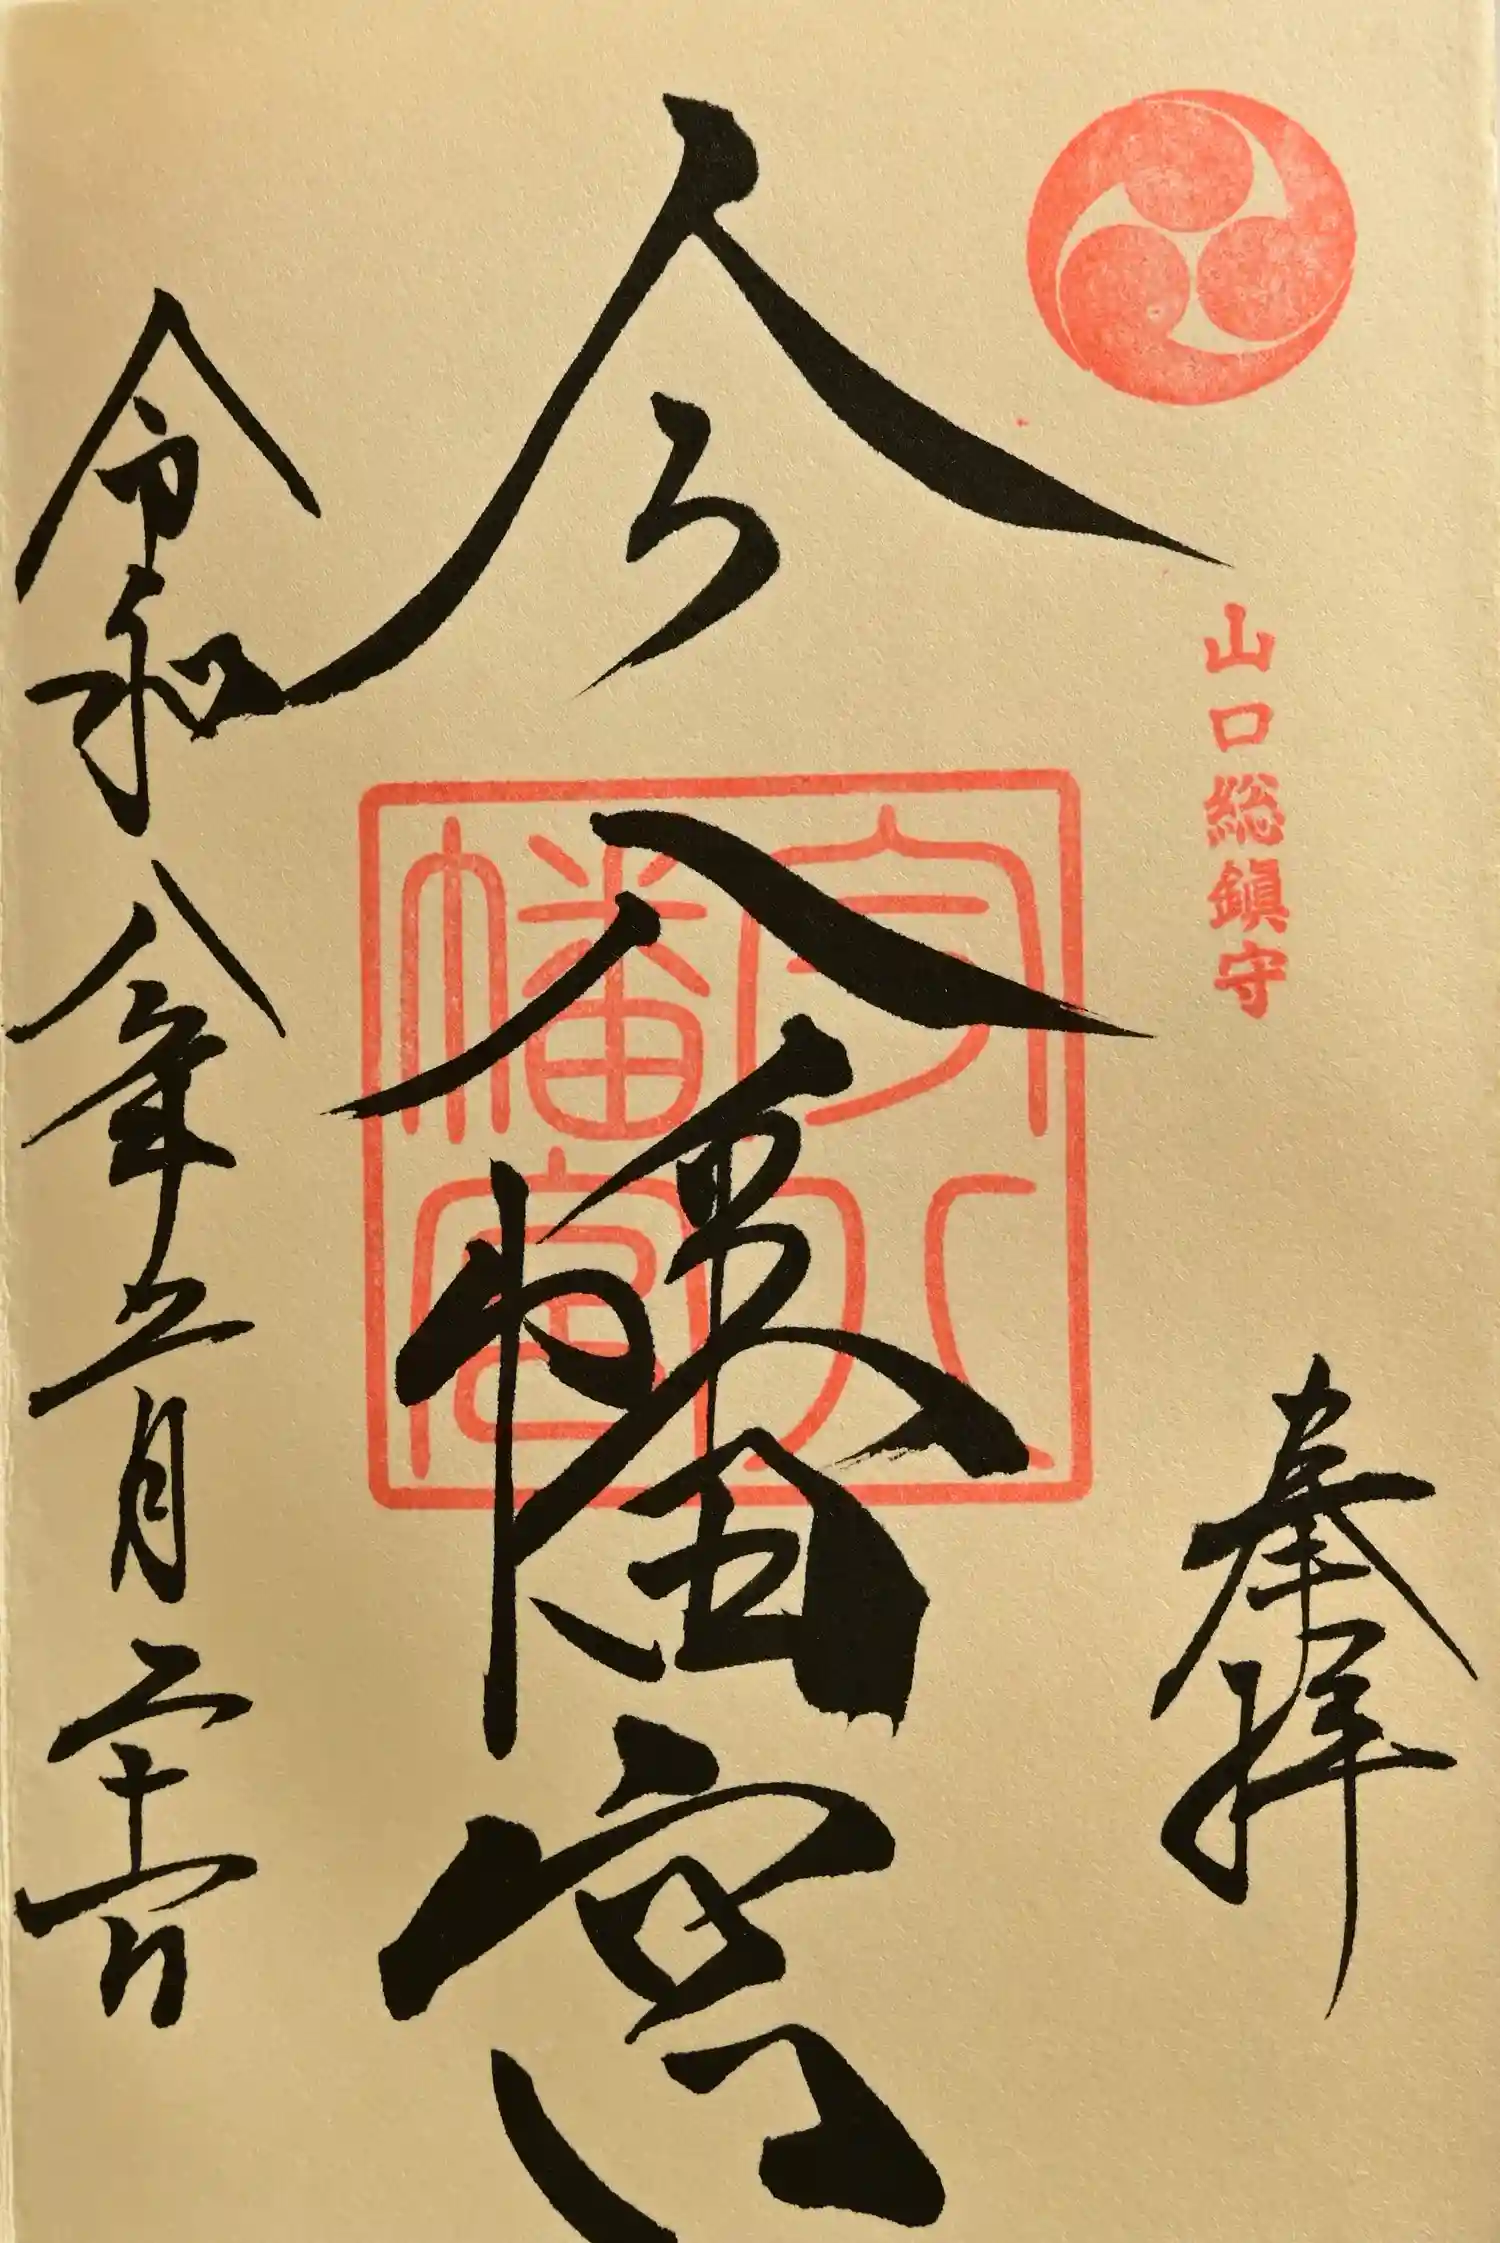 山口総鎮守
奉拝
今八幡宮
今八幡宮
令和八年五月二十一日